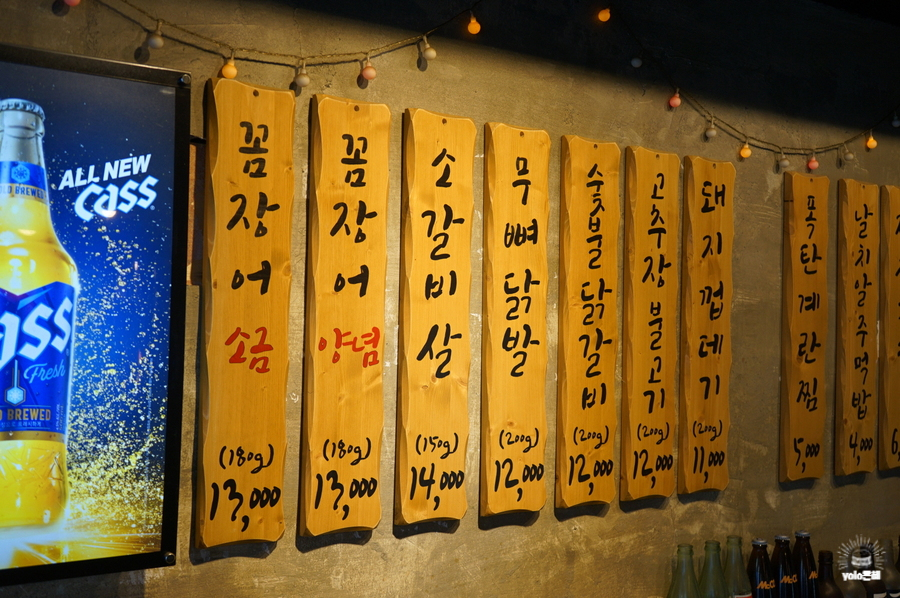 ALL NEW
Cass
Cass
Fresh
BREWED
꼼장어 소금
(180g)
13,000
꼼장어 양념
(180g)
13,000
소갈비살
(150g)
14,000
무뼈닭발
(200g)
12,000
숯불닭갈비
(200g)
12,000
고추장불고기
(200g)
12,000
돼지껍데기
(200g)
11,000
폭탄계란찜
5,000
날치알주먹밥
4,000
yolo